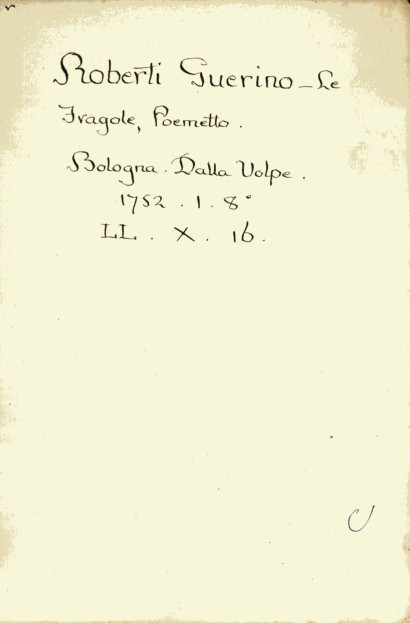 Roberti Guerino – Le
Fragole, Poemetto.
Bologna. Dalla Volpe.
1752. 1. 8°
LL. X. 16.